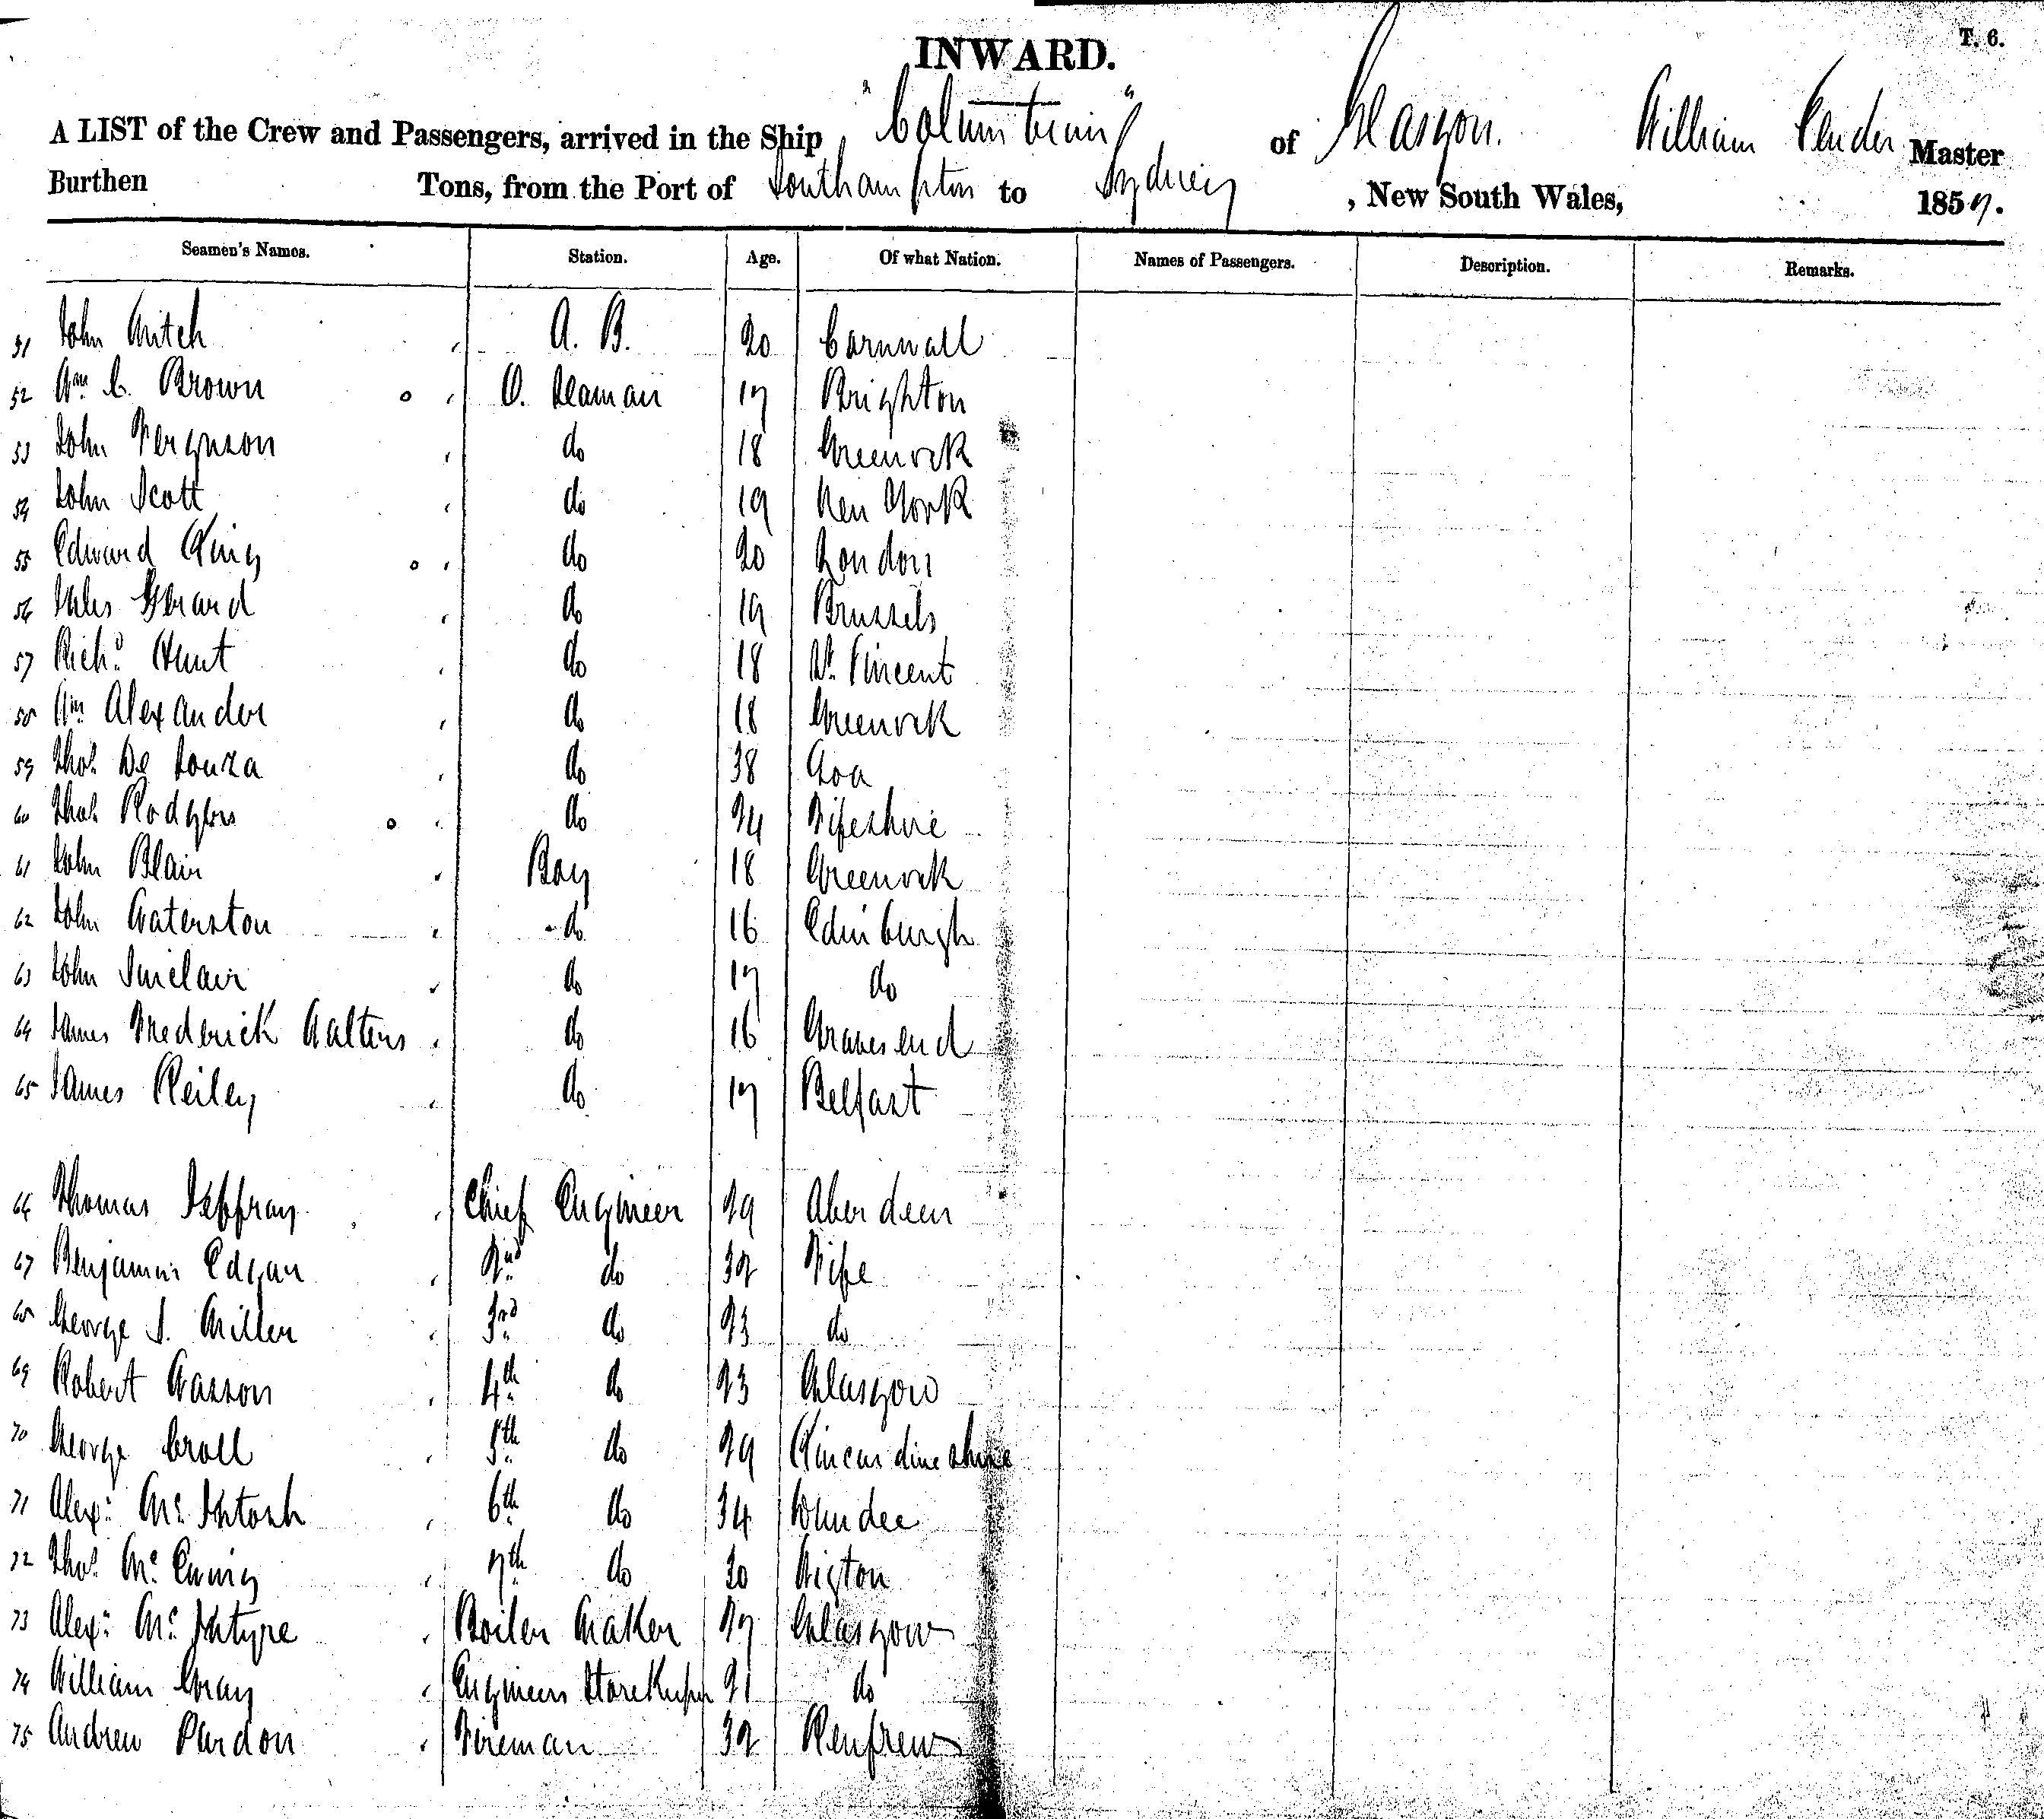 T. 6.
INWARD.
A LIST of the Crew and Passengers, arrived in the Ship "Columbian" of Glasgow. William Master
Burthen Tons, from the Port of Southampton to Sydney, New South Wales, 1857.
Seamen's Names. Station. Age. Of what Nation. Names of Passengers. Description. Remarks.
51 John Mitch A. B. 20 Cornwall
52 Wm C. Brown O. Seaman 17 Brighton
53 John Ferguson do 18 Greenock
54 John Scott do 19 New York
55 Edward King do 20 London
56 Jules Gerard do 19 Brussels
57 Richd Hunt do 18 St. Vincent
58 Wm Alexander do 18 Greenock
59 Thos De Souza do 38 Goa
60 Thos Rodgers do 24 Fifeshire
61 John Blair Boy 18 Greenock
62 John Waterston do 16 Edinburgh
63 John Sinclair do 17 do
64 James Frederick Walters do 16 Gravesend
65 James Reiley do 17 Belfast
66 Thomas Jeffray Chief Engineer 29 Aberdeen
67 Benjamin Edgar 2nd do 32 Fife
68 George S. Miller 3rd do 23 do
69 Robert Wasson 4th do 23 Glasgow
70 George Croll 5th do 29 Kincardineshire
71 Alexr McIntosh 6th do 34 Dundee
72 Thos McEwing 7th do 20 Wigton
73 Alexr McIntyre Boiler Maker 27 Glasgow
74 William Gray Engineers Storekeeper 21 do
75 Andrew Purdon Fireman 32 Renfrew